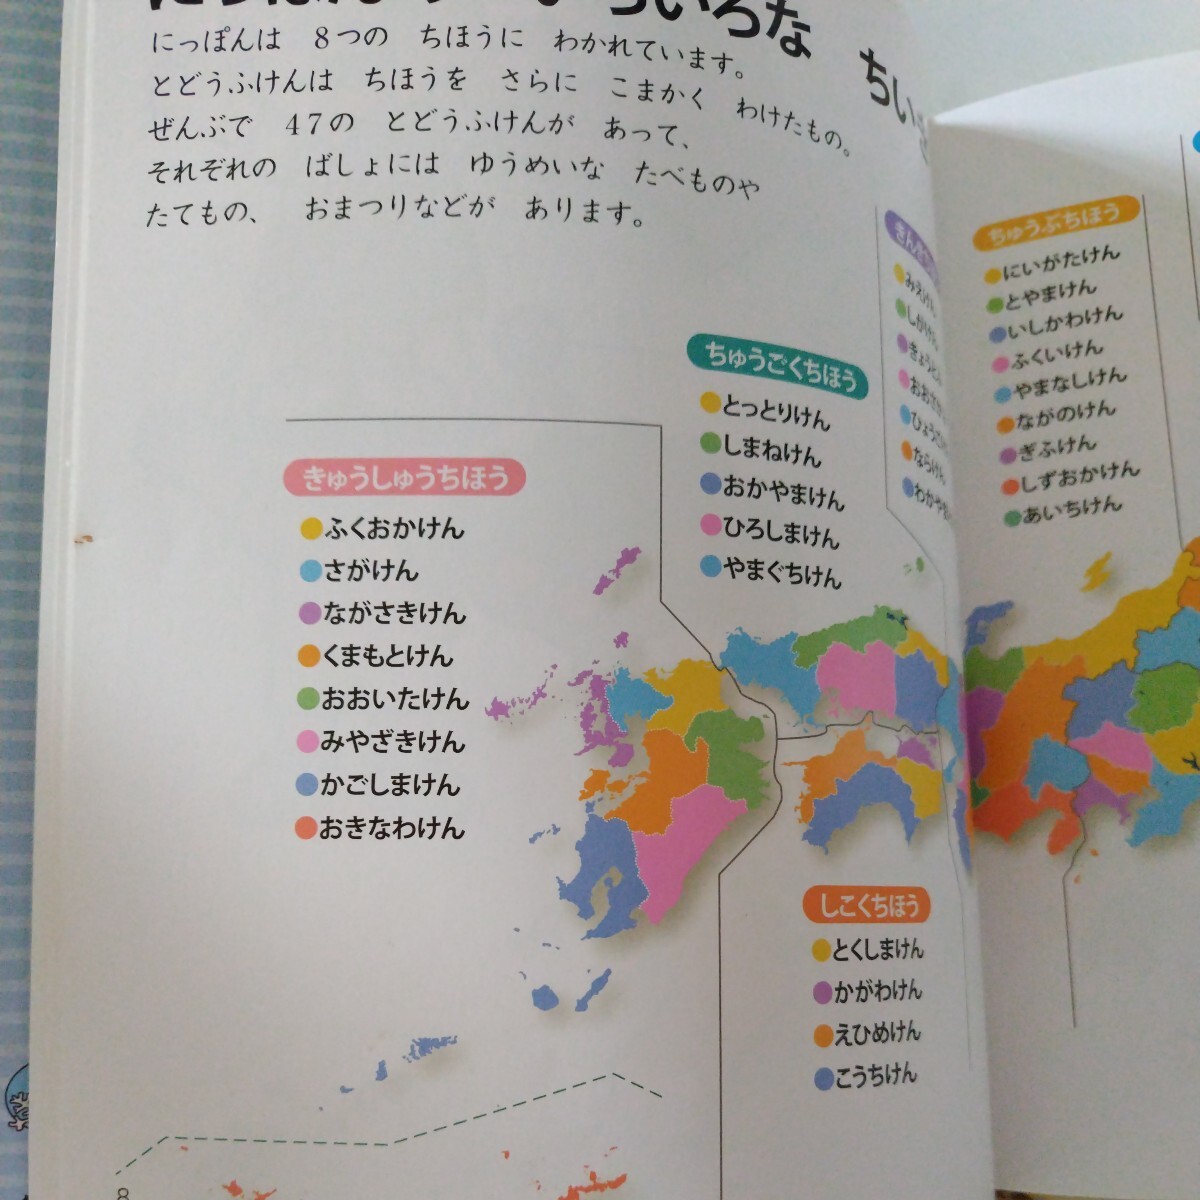 いろな ちい
にっぽんは 8つの ちほうに わかれています。
とどうふけんは ちほうを さらに こまかく わけたもの。
ぜんぶで 47の とどうふけんが あって、
それぞれの ばしょには ゆうめいな たべものや
たてもの、 おまつりなどが あります。
きゅうしゅうちほう
ふくおかけん
さがけん
ながさきけん
くまもとけん
おおいたけん
みやざきけん
かごしまけん
おきなわけん
ちゅうごくちほう
とっとりけん
しまねけん
おかやまけん
ひろしまけん
やまぐちけん
しこくちほう
とくしまけん
かがわけん
えひめけん
こうちけん
みえけん
しがけん
ならけん
ちゅうぶちほう
にいがたけん
とやまけん
いしかわけん
ふくいけん
やまなしけん
ながのけん
ぎふけん
しずおかけん
あいちけん
8